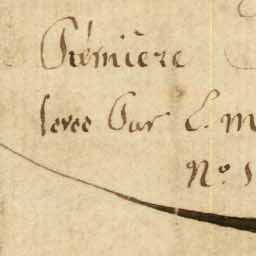 Premiere
levee Par L. M
No. 1